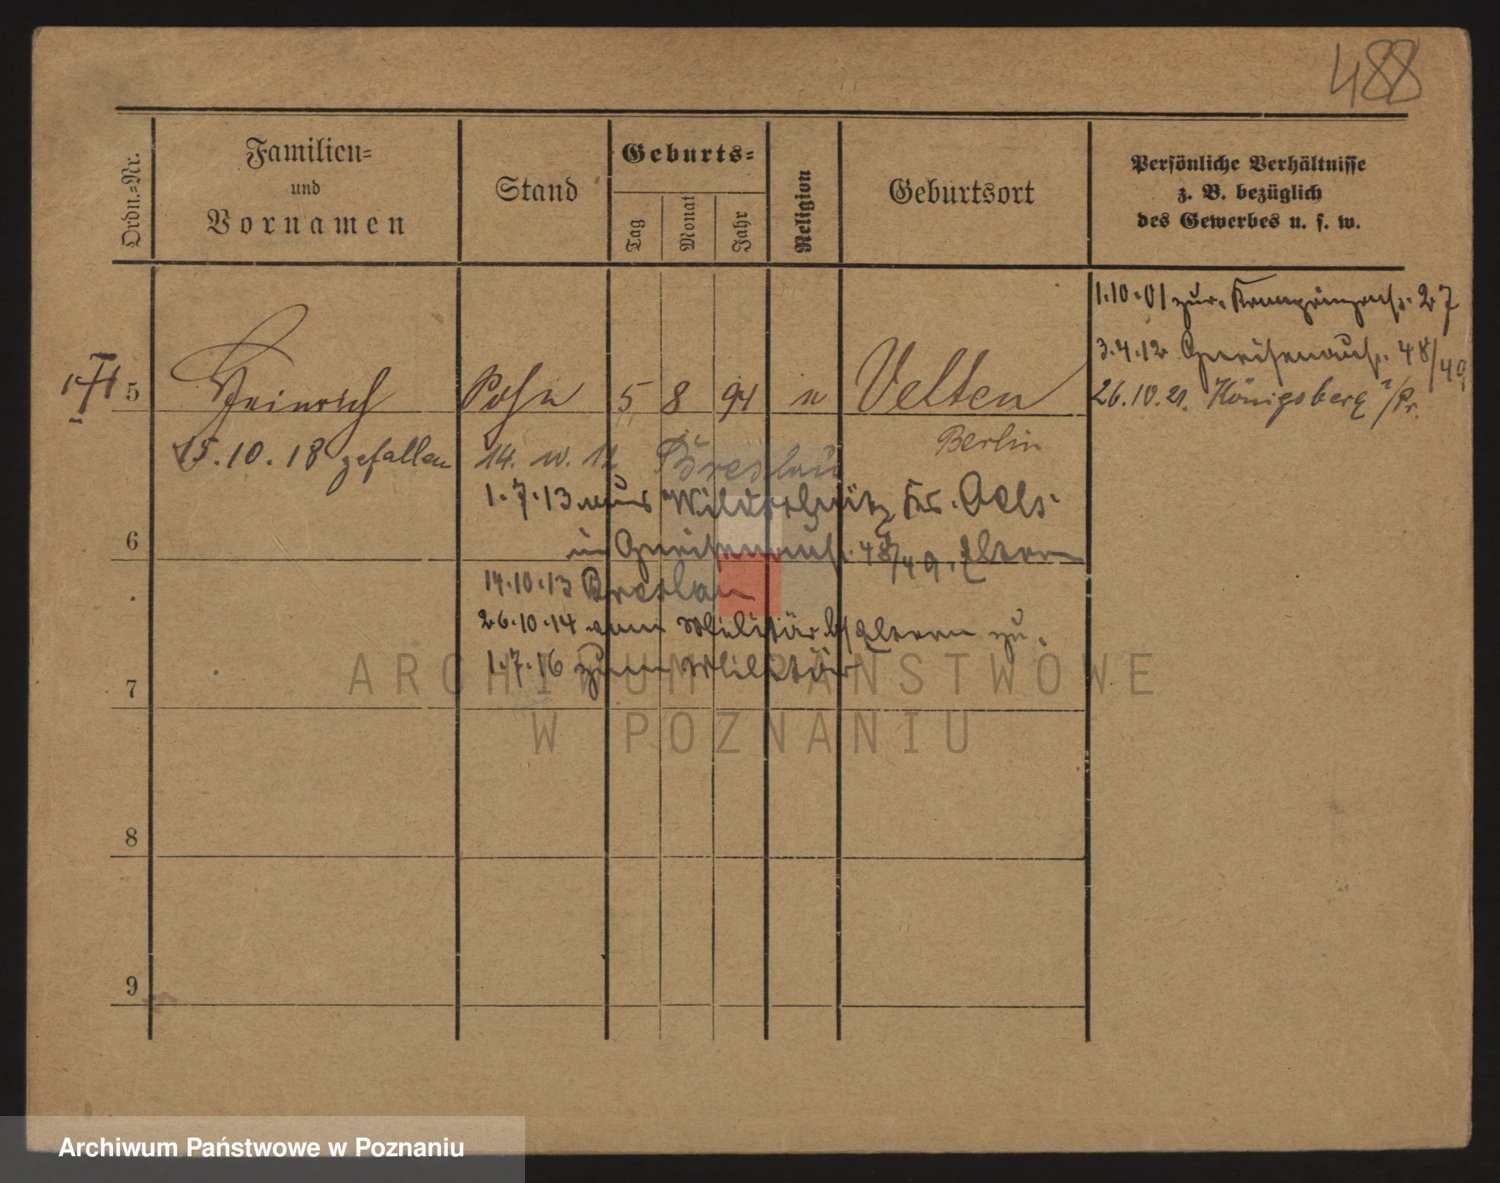 488
Ordn.=Nr.
Familien=
und
Vornamen
Stand
Geburts=
Tag
Monat
Jahr
Religion
Geburtsort
Persönliche Verhältnisse
z. B. bezüglich
des Gewerbes u. s. w.
1.10.01 zur. Kronprinzenst. 27
3.4.12 Gneisenaust. 48/49
26.10.21. Königsberg i/Pr.
5 Heinrich Sohn 5 8 94 Velten
15.10.18 gefallen 14. 12 Breslau Berlin
1.7.13 aus Oels.
6
in Gneisenaust. 48/49. Eltern
14.10.13 Breslau
26.10.14 vom Militär Eltern zu.
1.7.16 zum Militär
7
8
9
ARCHIWUM PAŃSTWOWE
W POZNANIU
Archiwum Państwowe w Poznaniu